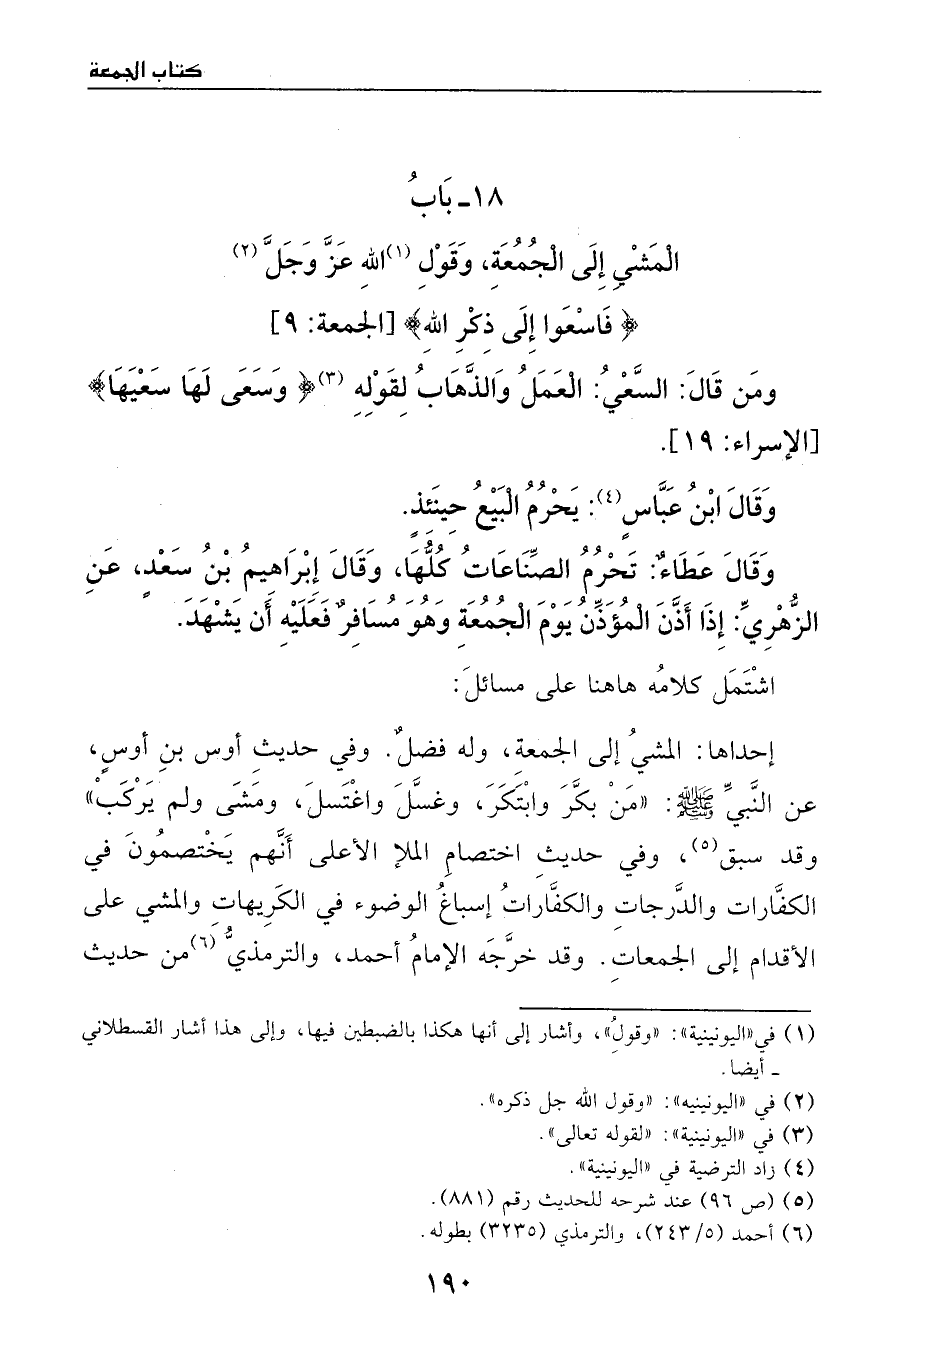 كتاب الجمعة
١٨ـ بَابُ
الْمَشْيِ إِلَى الْجُمُعَةِ، وَقَوْلِ (١)اللهِ عَزَّ وَجَلَّ (٢)
﴿ فَاسْعَوا إِلَى ذِكْرِ اللهِ﴾ [الجمعة: ٩]
ومَن قَالَ: السَّعْيُ: الْعَمَلُ وَالذَّهَابُ لِقَوْلِهِ (٣)﴿ وَسَعَى لَهَا سَعْيَهَا﴾
[الإسراء: ١٩].
وَقَالَ ابْنُ عَبَّاسٍ(٤): يَحْرُمُ الْبَيْعُ حِينَئِذٍ.
وَقَالَ عَطَاءٌ: تَحْرُمُ الصِّنَاعَاتُ كُلُّهَا، وَقَالَ إِبْرَاهِيمُ بْنُ سَعْدٍ، عَنِ
الزُّهْرِيِّ: إِذَا أَذَّنَ الْمُؤَذِّنُ يَوْمَ الْجُمُعَةِ وَهُوَ مُسَافِرٌ فَعَلَيْهِ أَن يَشْهَدَ.
اشْتَمَل كلامُه هاهنا على مسائلَ:
إحداها: المشيُ إلى الجمعةِ، وله فضلٌ. وفي حديثِ أوس بنِ أوسٍ،
عن النَّبيِّ ﷺ: «مَنْ بكَّرَ وابْتكَرَ، وغسَّلَ واغْتسلَ، ومشَى ولم يَرْكَبْ»
وقد سبق(٥)، وفي حديثِ اختصامِ الملإ الأعلى أنَّهم يَخْتصمُونَ في
الكفَّارات والدَّرجاتِ والكفَّاراتُ إسباغُ الوضوء في الكَرِيهاتِ والمشي على
الأقدام إلى الجمعاتِ. وقد خرَّجَه الإمامُ أحمد، والترمذيُّ (٦)من حديث
(١) في«اليونينية»: «وقولُِ»، وأشار إلى أنها هكذا بالضبطين فيها، وإلى هذا أشار القسطلاني
ـ أيضا.
(٢) في «اليونينيه»: «وقول الله جل ذكره».
(٣) في «اليونينية»: «لقوله تعالى».
(٤) زاد الترضية في «اليونينية».
(٥) (ص ٩٦) عند شرحه للحديث رقم (٨٨١).
(٦) أحمد (٥/ ٢٤٣)، والترمذي (٣٢٣٥) بطوله.
١٩٠